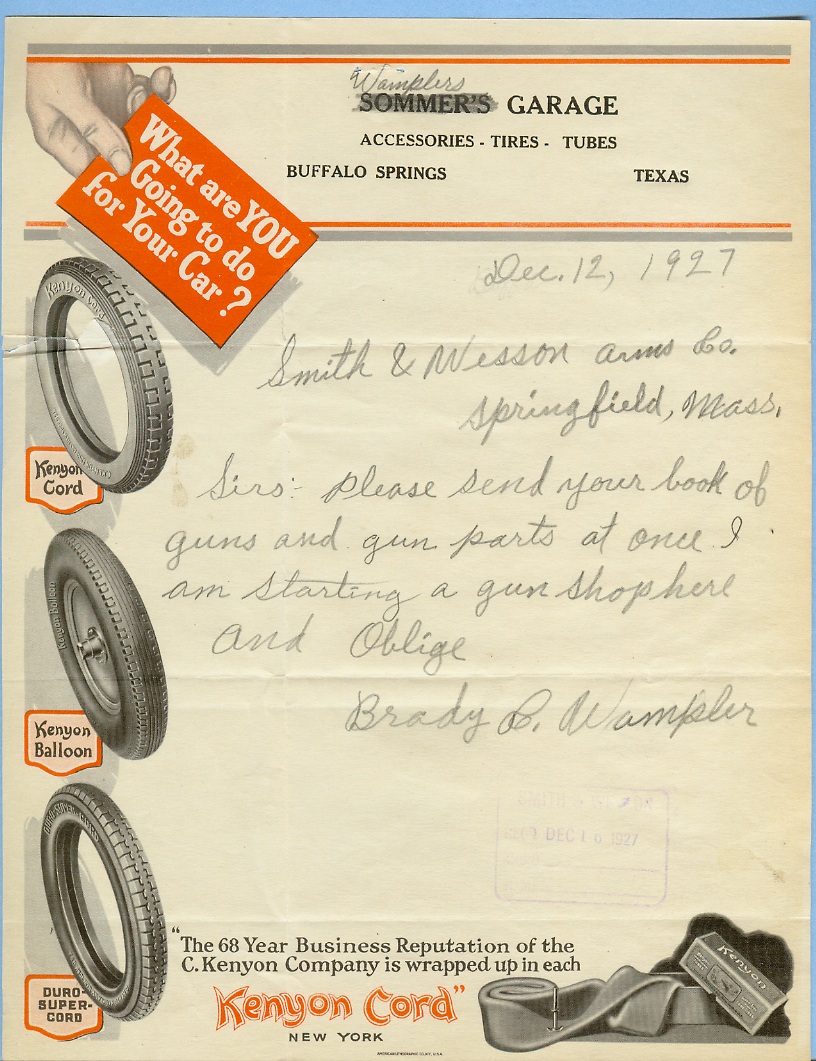 Wamplers
SOMMER'S GARAGE
ACCESSORIES - TIRES - TUBES
BUFFALO SPRINGS TEXAS
What are YOU
Going to do
for Your Car?
Dec. 12, 1927
Kenyon Cord
Smith & Wesson arms Co.
Springfield, Mass.
Kenyon
Cord
Sirs:- please send your book of
guns and gun parts at once I
am starting a gun shop here
and Oblige
Kenyon Balloon
Brady C. Wampler
Kenyon
Balloon
SMITH & WESSON
DEC 16 1927
DURO-SUPER-CORD
"The 68 Year Business Reputation of the
C. Kenyon Company is wrapped up in each
Kenyon Cord"
NEW YORK
Kenyon
DURO-
SUPER-
CORD